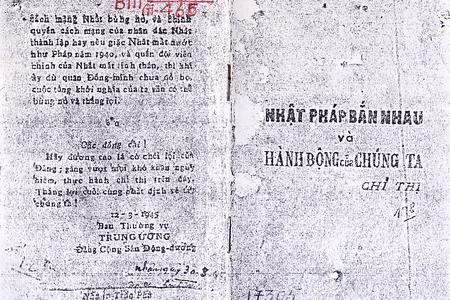 cách mạng Nhật bùng nổ, và chính
quyền cách mạng của nhân dân Nhật
thành lập hay nếu giặc Nhật mất nước
như Pháp năm 1940, và quân đội viễn
chinh của Nhật mất tinh thần, thì khi
ấy dù quân Đồng-minh chưa đổ bộ,
cuộc tổng khởi nghĩa của ta vẫn có thể
bùng nổ và thắng lợi.
Các đồng chí !
Hãy đương tao là có chói lọi của
Đảng; gắng vượt mọi khó khăn nguy
hiểm, thực hành chỉ thị trên đây.
Thắng lợi cuối cùng nhất định về
chúng ta !
12-3-1945
Ban Thường vụ
TRUNG ƯƠNG
Đảng Cộng Sản Đông-dương
NHẬT PHÁP BẮN NHAU
và
HÀNH ĐỘNG của CHÚNG TA
CHỈ THỊ